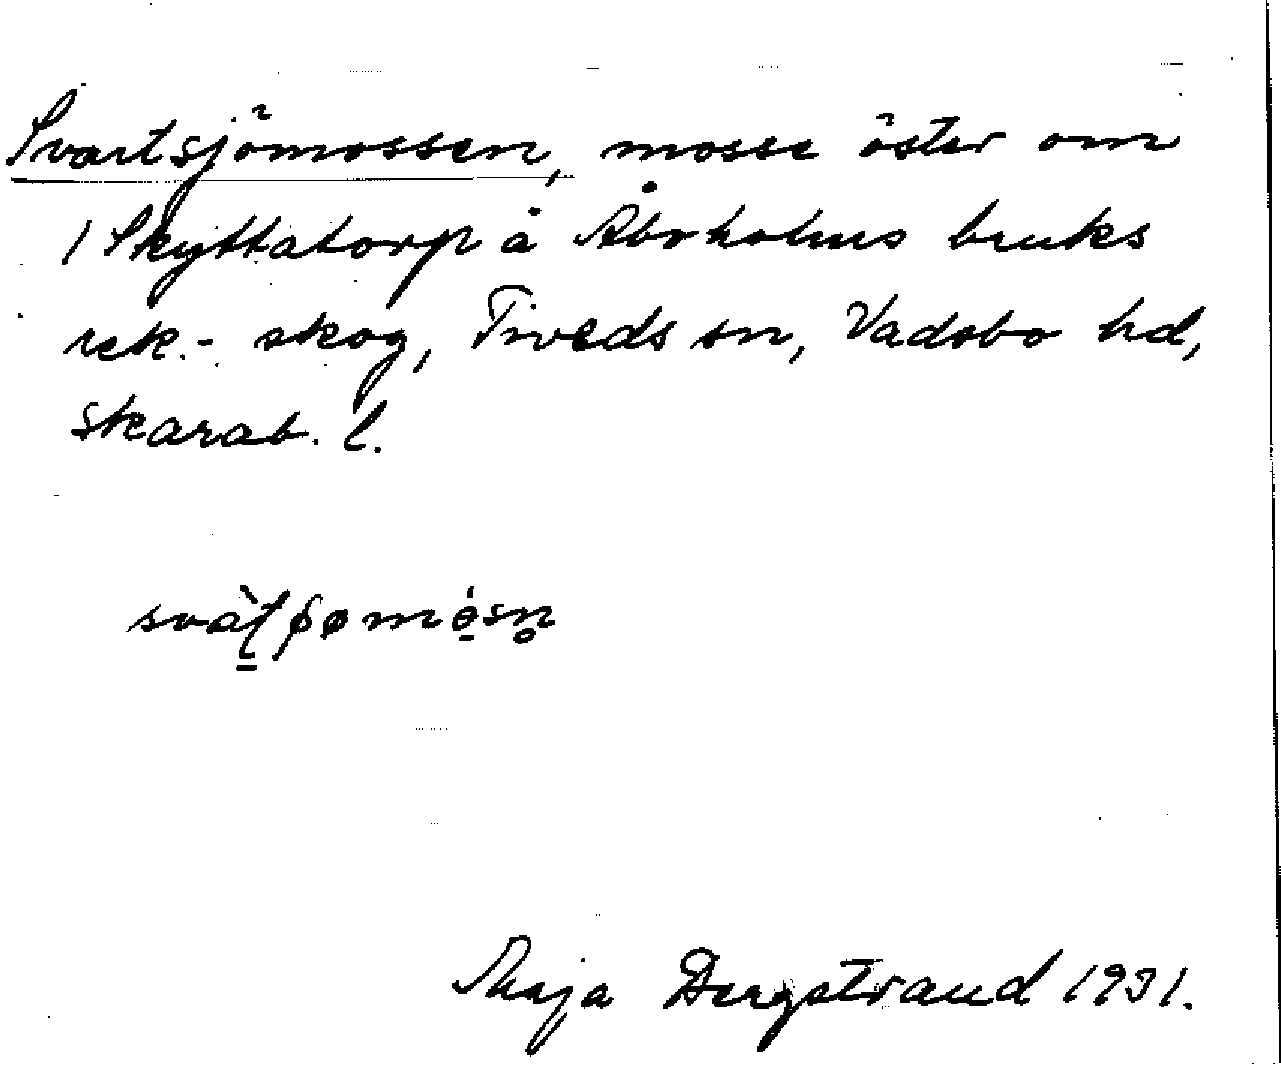 Svartsjömossen, mosse öster om
/ Skyttatorp å Åboholms bruks
rek.- skog, Tiveds sn, Vadsbo hd,
Skarab. l.
Maja Bergstrand 1931.